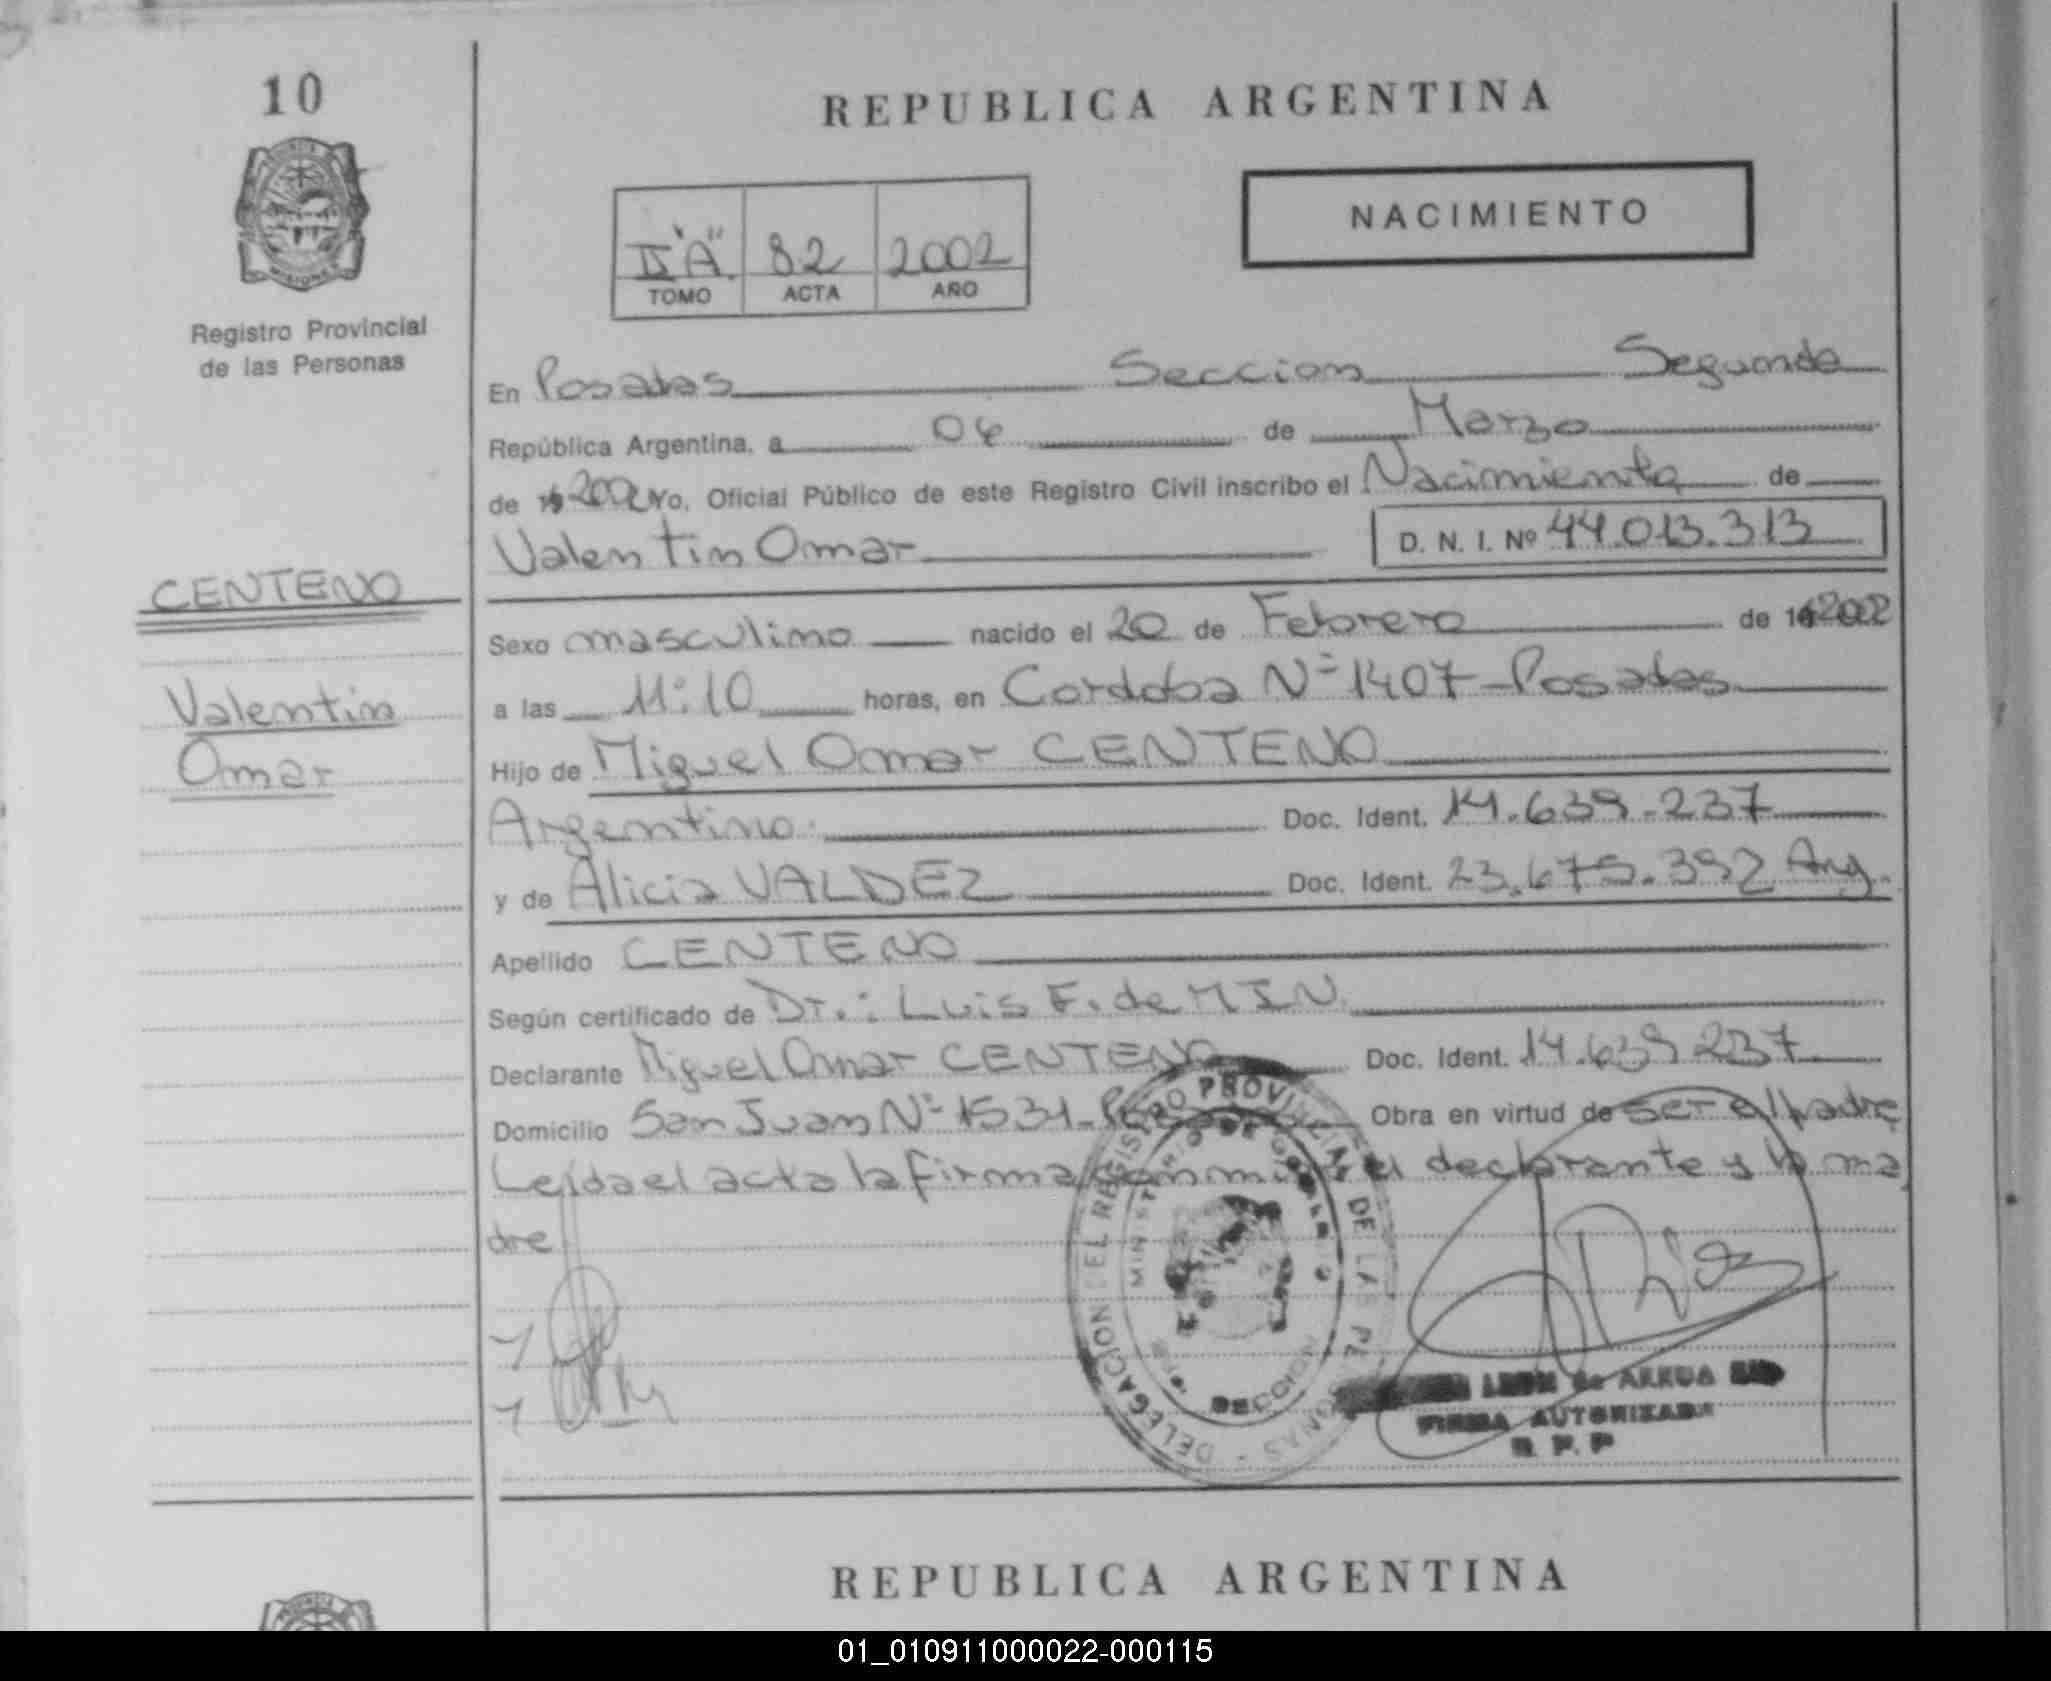 10
REPUBLICA ARGENTINA
NACIMIENTO
II "A" 82 2002
TOMO ACTA AÑO
Registro Provincial
de las Personas
En Posadas Seccion Segunda
República Argentina, a 06 de Marzo
de 2002 Yo, Oficial Público de este Registro Civil inscribo el Nacimiento de
Valentin Omar D. N. I. Nº 44.013.313
CENTENO
Sexo masculino nacido el 20 de Febrero de 2002
Valentin
a las 11:10 horas, en Cordoba Nº 1407-Posadas
Omar
Hijo de Miguel Omar CENTENO
Argentino. Doc. Ident. 14.639.237
y de Alicia VALDEZ Doc. Ident. 23.675.392 Arg.
Apellido CENTENO
Según certificado de Dr.: Luis F. de MIN.
Declarante Miguel Omar CENTENO Doc. Ident. 14.639.237
Domicilio San Juan Nº 1531- Obra en virtud de ser el padre
Leida el acta la firma conmigo el declarante y la ma
dre
DELEGACION DEL REGISTRO PROVINCIAL DE LAS PERSONAS
MINISTERIO DE GOBIERNO
SECCION
LEON de ARRUA
FIRMA AUTORIZADA
R. P. P
REPUBLICA ARGENTINA
01_010911000022-000115